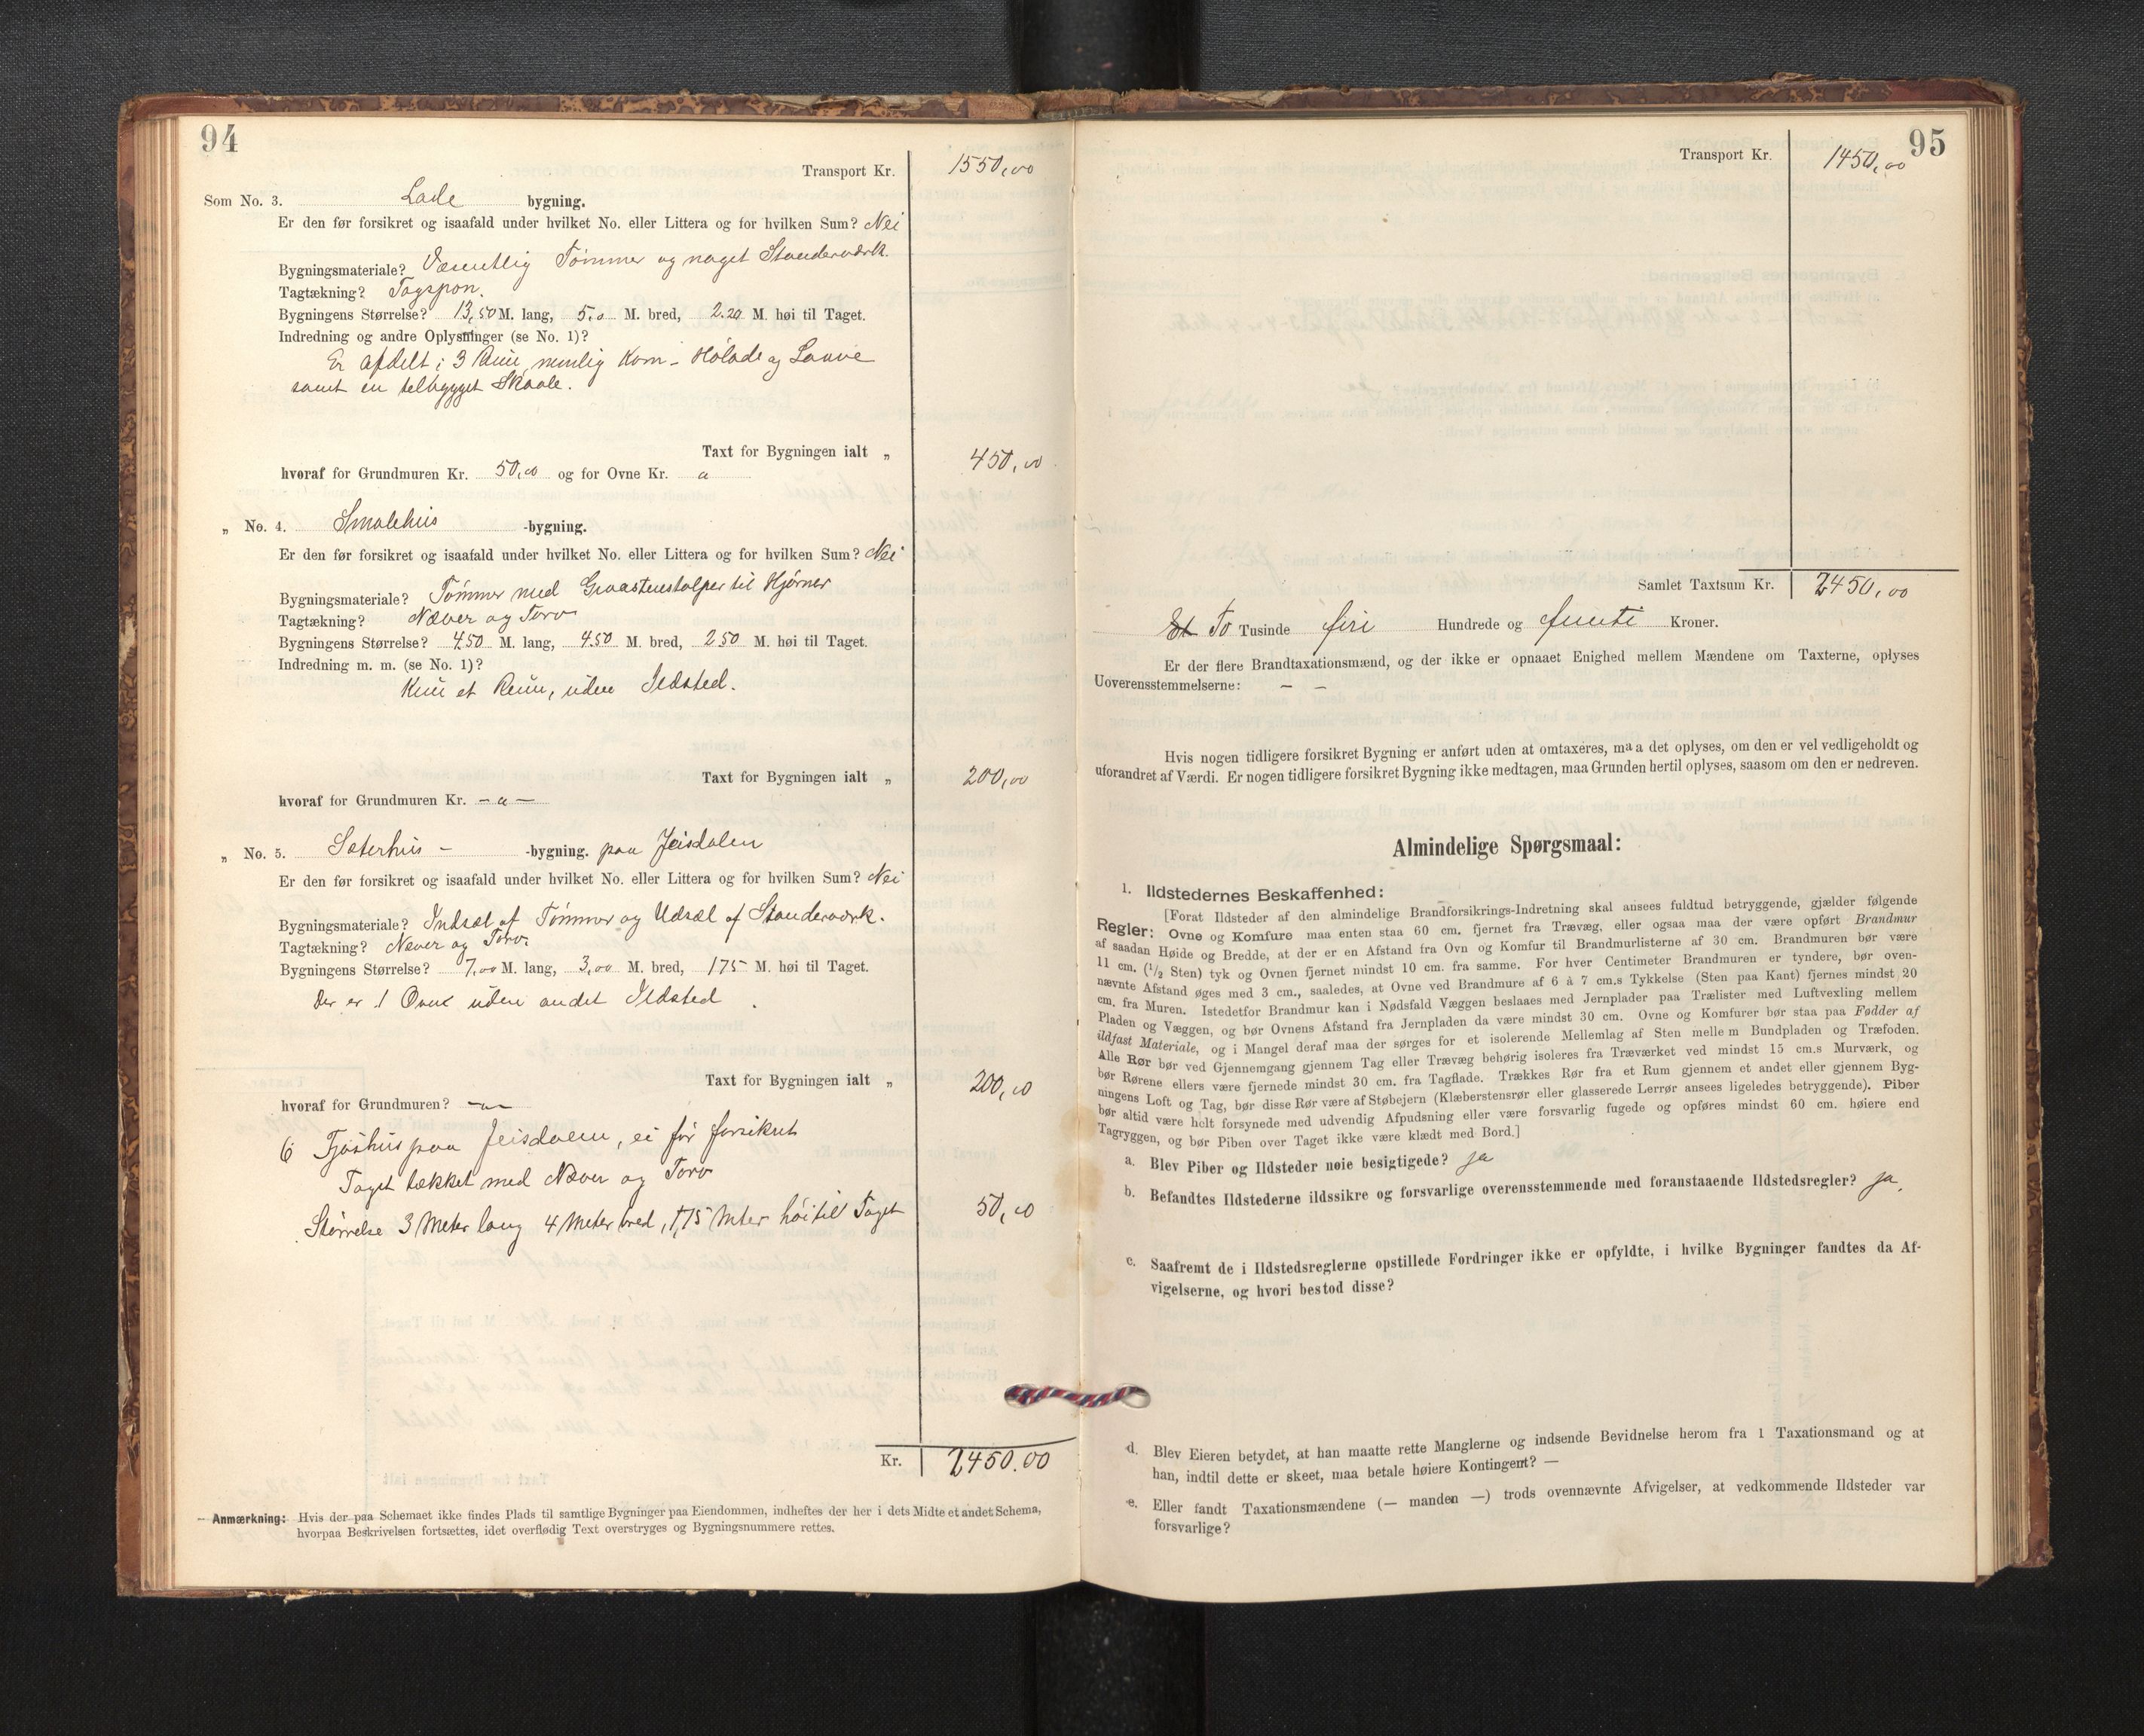 94
Transport Kr. 1550,00
Som No. 3. Lade bygning.
Er den før forsikret og isaafald under hvilket No. eller Littera og for hvilken Sum? Nei
Bygningsmateriale? Væsentlig Tømmer og noget Standerværk.
Tagtækning? Tagspon.
Bygningens Størrelse? 13,50 M. lang, 5,0 M. bred, 2.20 M. høi til Taget.
Indredning og andre Oplysninger (se No. 1)?
Er afdelt i 3 Rum, nemlig Korn- Hølade og Laave
samt en tilbygget Skaale.
Taxt for Bygningen ialt „ 450,00
hvoraf for Grundmuren Kr. 50,00 og for Ovne Kr. „
„ No. 4. Smalehus -bygning.
Er den før forsikret og isaafald under hvilket No. eller Littera og for hvilken Sum? Nei
Bygningsmateriale? Tømmer med Graastenstolper til Hjørner
Tagtækning? Næver og Torv
Bygningens Størrelse? 4.50 M. lang, 4.50 M. bred, 2.50 M. høi til Taget.
Indredning m. m. (se No. 1)?
Kun et Rum, uden Ildsted.
Taxt for Bygningen ialt „ 200,00
hvoraf for Grundmuren Kr. – „ –
„ No. 5. Sæterhus – -bygning. paa Jeisdalen
Er den før forsikret og isaafald under hvilket No. eller Littera og for hvilken Sum? Nei
Bygningsmateriale? Indsæl af Tømmer og Udsæl af Standerværk.
Tagtækning? Næver og Torv.
Bygningens Størrelse? 7,00 M. lang, 3,00 M. bred, 175 M. høi til Taget.
Der er 1 Ovn uden andet Ildsted.
Taxt for Bygningen ialt „ 200,00
hvoraf for Grundmuren? – „ –
6 Fjøshus paa Jeisdalen, ei før forsikret
Taget tækket med Næver og Torv
Størrelse 3 Meter lang 4 Meter bred, 1,75 Meter høi til Taget 50,00
Kr. 2450.00
Anmærkning: Hvis der paa Schemaet ikke findes Plads til samtlige Bygninger paa Eiendommen, indheftes der her i dets Midte et andet Schema,
hvorpaa Beskrivelsen fortsættes, idet overflødig Text overstryges og Bygningsnummere rettes.
95
Transport Kr. 1450,00
Samlet Taxtsum Kr. 2450,00
Et To Tusinde firi Hundrede og femti Kroner.
Er der flere Brandtaxationsmænd, og der ikke er opnaaet Enighed mellem Mændene om Taxterne, oplyses
Uoverensstemmelserne: – –
Hvis nogen tidligere forsikret Bygning er anført uden at omtaxeres, maa det oplyses, om den er vel vedligeholdt og
uforandret af Værdi. Er nogen tidligere forsikret Bygning ikke medtagen, maa Grunden hertil oplyses, saasom om den er nedreven.
Almindelige Spørgsmaal:
1. Ildstedernes Beskaffenhed:
[Forat Ildsteder af den almindelige Brandforsikrings-Indretning skal ansees fuldtud betryggende, gjælder følgende
Regler: Ovne og Komfure maa enten staa 60 cm. fjernet fra Trævæg, eller ogsaa maa der være opført Brandmur
af saadan Høide og Bredde, at der er en Afstand fra Ovn og Komfur til Brandmurlisterne af 30 cm. Brandmuren bør være
11 cm. (1/2 Sten) tyk og Ovnen fjernet mindst 10 cm. fra samme. For hver Centimeter Brandmuren er tyndere, bør oven-
nævnte Afstand øges med 3 cm., saaledes, at Ovne ved Brandmure af 6 à 7 cm.s Tykkelse (Sten paa Kant) fjernes mindst 20
cm. fra Muren. Istedetfor Brandmur kan i Nødsfald Væggen beslaaes med Jernplader paa Trælister med Luftvexling mellem
Pladen og Væggen, og bør Ovnens Afstand fra Jernpladen da være mindst 30 cm. Ovne og Komfurer bør staa paa Fødder af
ildfast Materiale, og i Mangel deraf maa der sørges for et isolerende Mellemlag af Sten mellem Bundpladen og Træfoden.
Alle Rør bør ved Gjennemgang gjennem Tag eller Trævæg behørig isoleres fra Træværket ved mindst 15 cm.s Murværk, og
bør Rørene ellers være fjernede mindst 30 cm. fra Tagflade. Trækkes Rør fra et Rum gjennem et andet eller gjennem Byg-
ningens Loft og Tag, bør disse Rør være af Støbejern (Klæberstensrør eller glasserede Lerrør ansees ligeledes betryggende). Piber
bør altid være helt forsynede med udvendig Afpudsning eller være forsvarlig fugede og opføres mindst 60 cm. høiere end
Tagryggen, og bør Piben over Taget ikke være klædt med Bord.]
a. Blev Piber og Ildsteder nøie besigtigede? ja
b. Befandtes Ildstederne ildssikre og forsvarlige overensstemmende med foranstaaende Ildstedsregler? ja,
c. Saafremt de i Ildstedsreglerne opstillede Fordringer ikke er opfyldte, i hvilke Bygninger fandtes da Af-
vigelserne, og hvori bestod disse?
d. Blev Eieren betydet, at han maatte rette Manglerne og indsende Bevidnelse herom fra 1 Taxationsmand og at
han, indtil dette er skeet, maa betale høiere Kontingent? —
e. Eller fandt Taxationsmændene (— manden —) trods ovennævnte Afvigelser, at vedkommende Ildsteder var
forsvarlige?